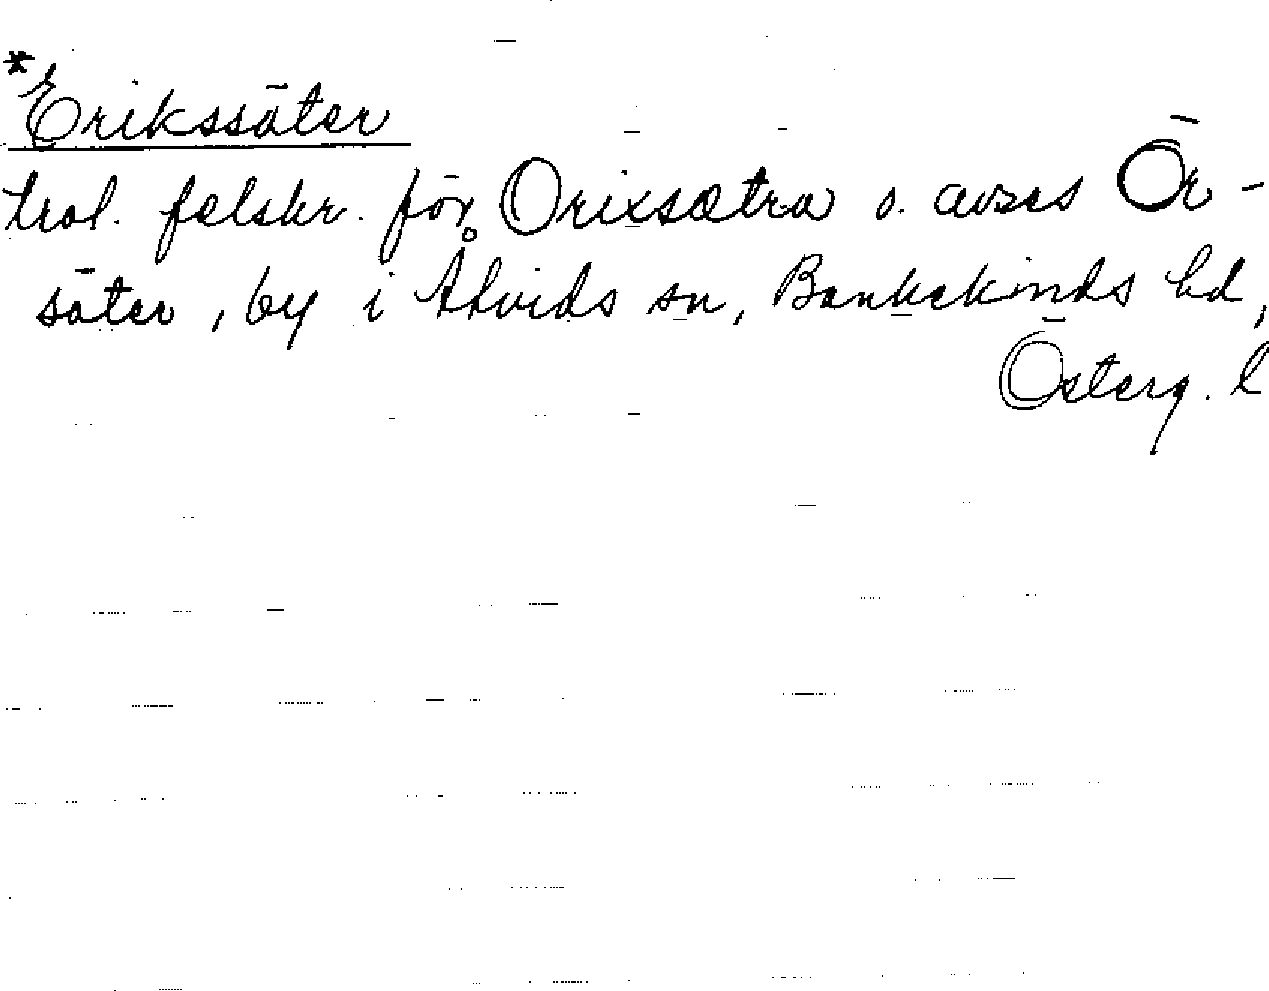 *Erikssäter
trol. felskr. för Orixsætra o. avses Ör-
säter, by i Åtvids sn, Bankekinds hd,
Österg. l